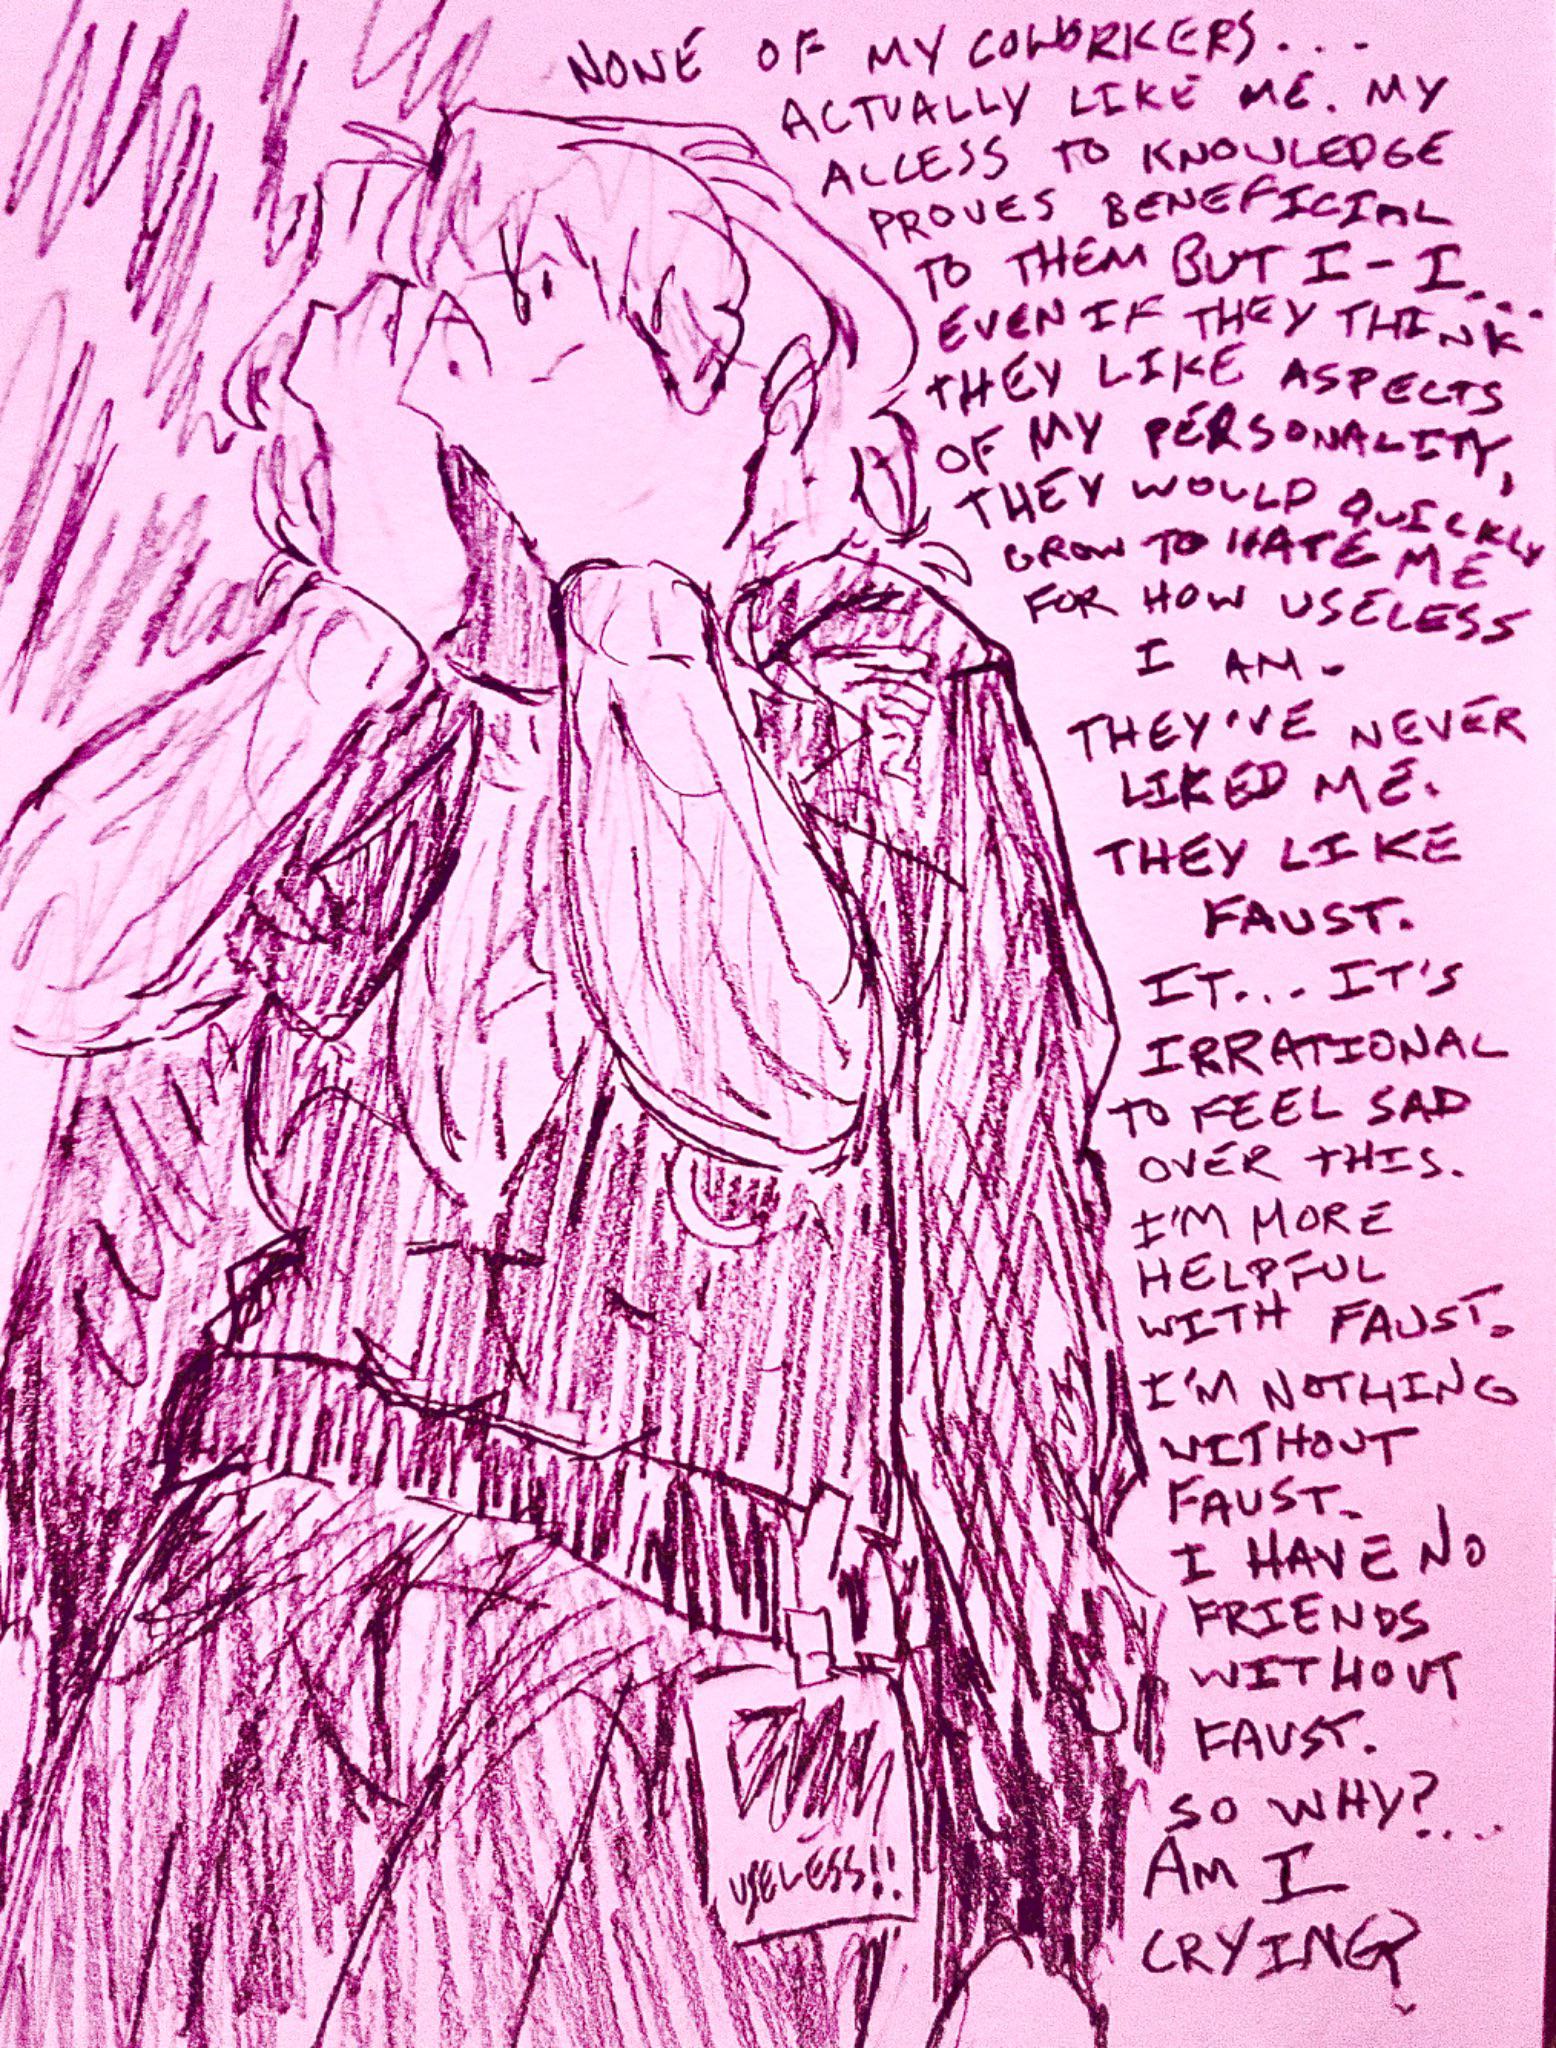 NONE OF MY COWORKERS...
ACTUALLY LIKE ME. MY
ACCESS TO KNOWLEDGE
PROVES BENEFICIAL
TO THEM BUT I-I....
EVEN IF THEY THINK
THEY LIKE ASPECTS
OF MY PERSONALITY,
THEY WOULD QUICKLY
GROW TO HATE ME
FOR HOW USELESS
I AM.
THEY'VE NEVER
LIKED ME.
THEY LIKE
FAUST.
IT... IT'S
IRRATIONAL
TO FEEL SAD
OVER THIS.
I'M MORE
HELPFUL
WITH FAUST.
I'M NOTHING
WITHOUT
FAUST.
I HAVE NO
FRIENDS
WITHOUT
FAUST.
SO WHY?...
AM I
CRYING?
USELESS!!